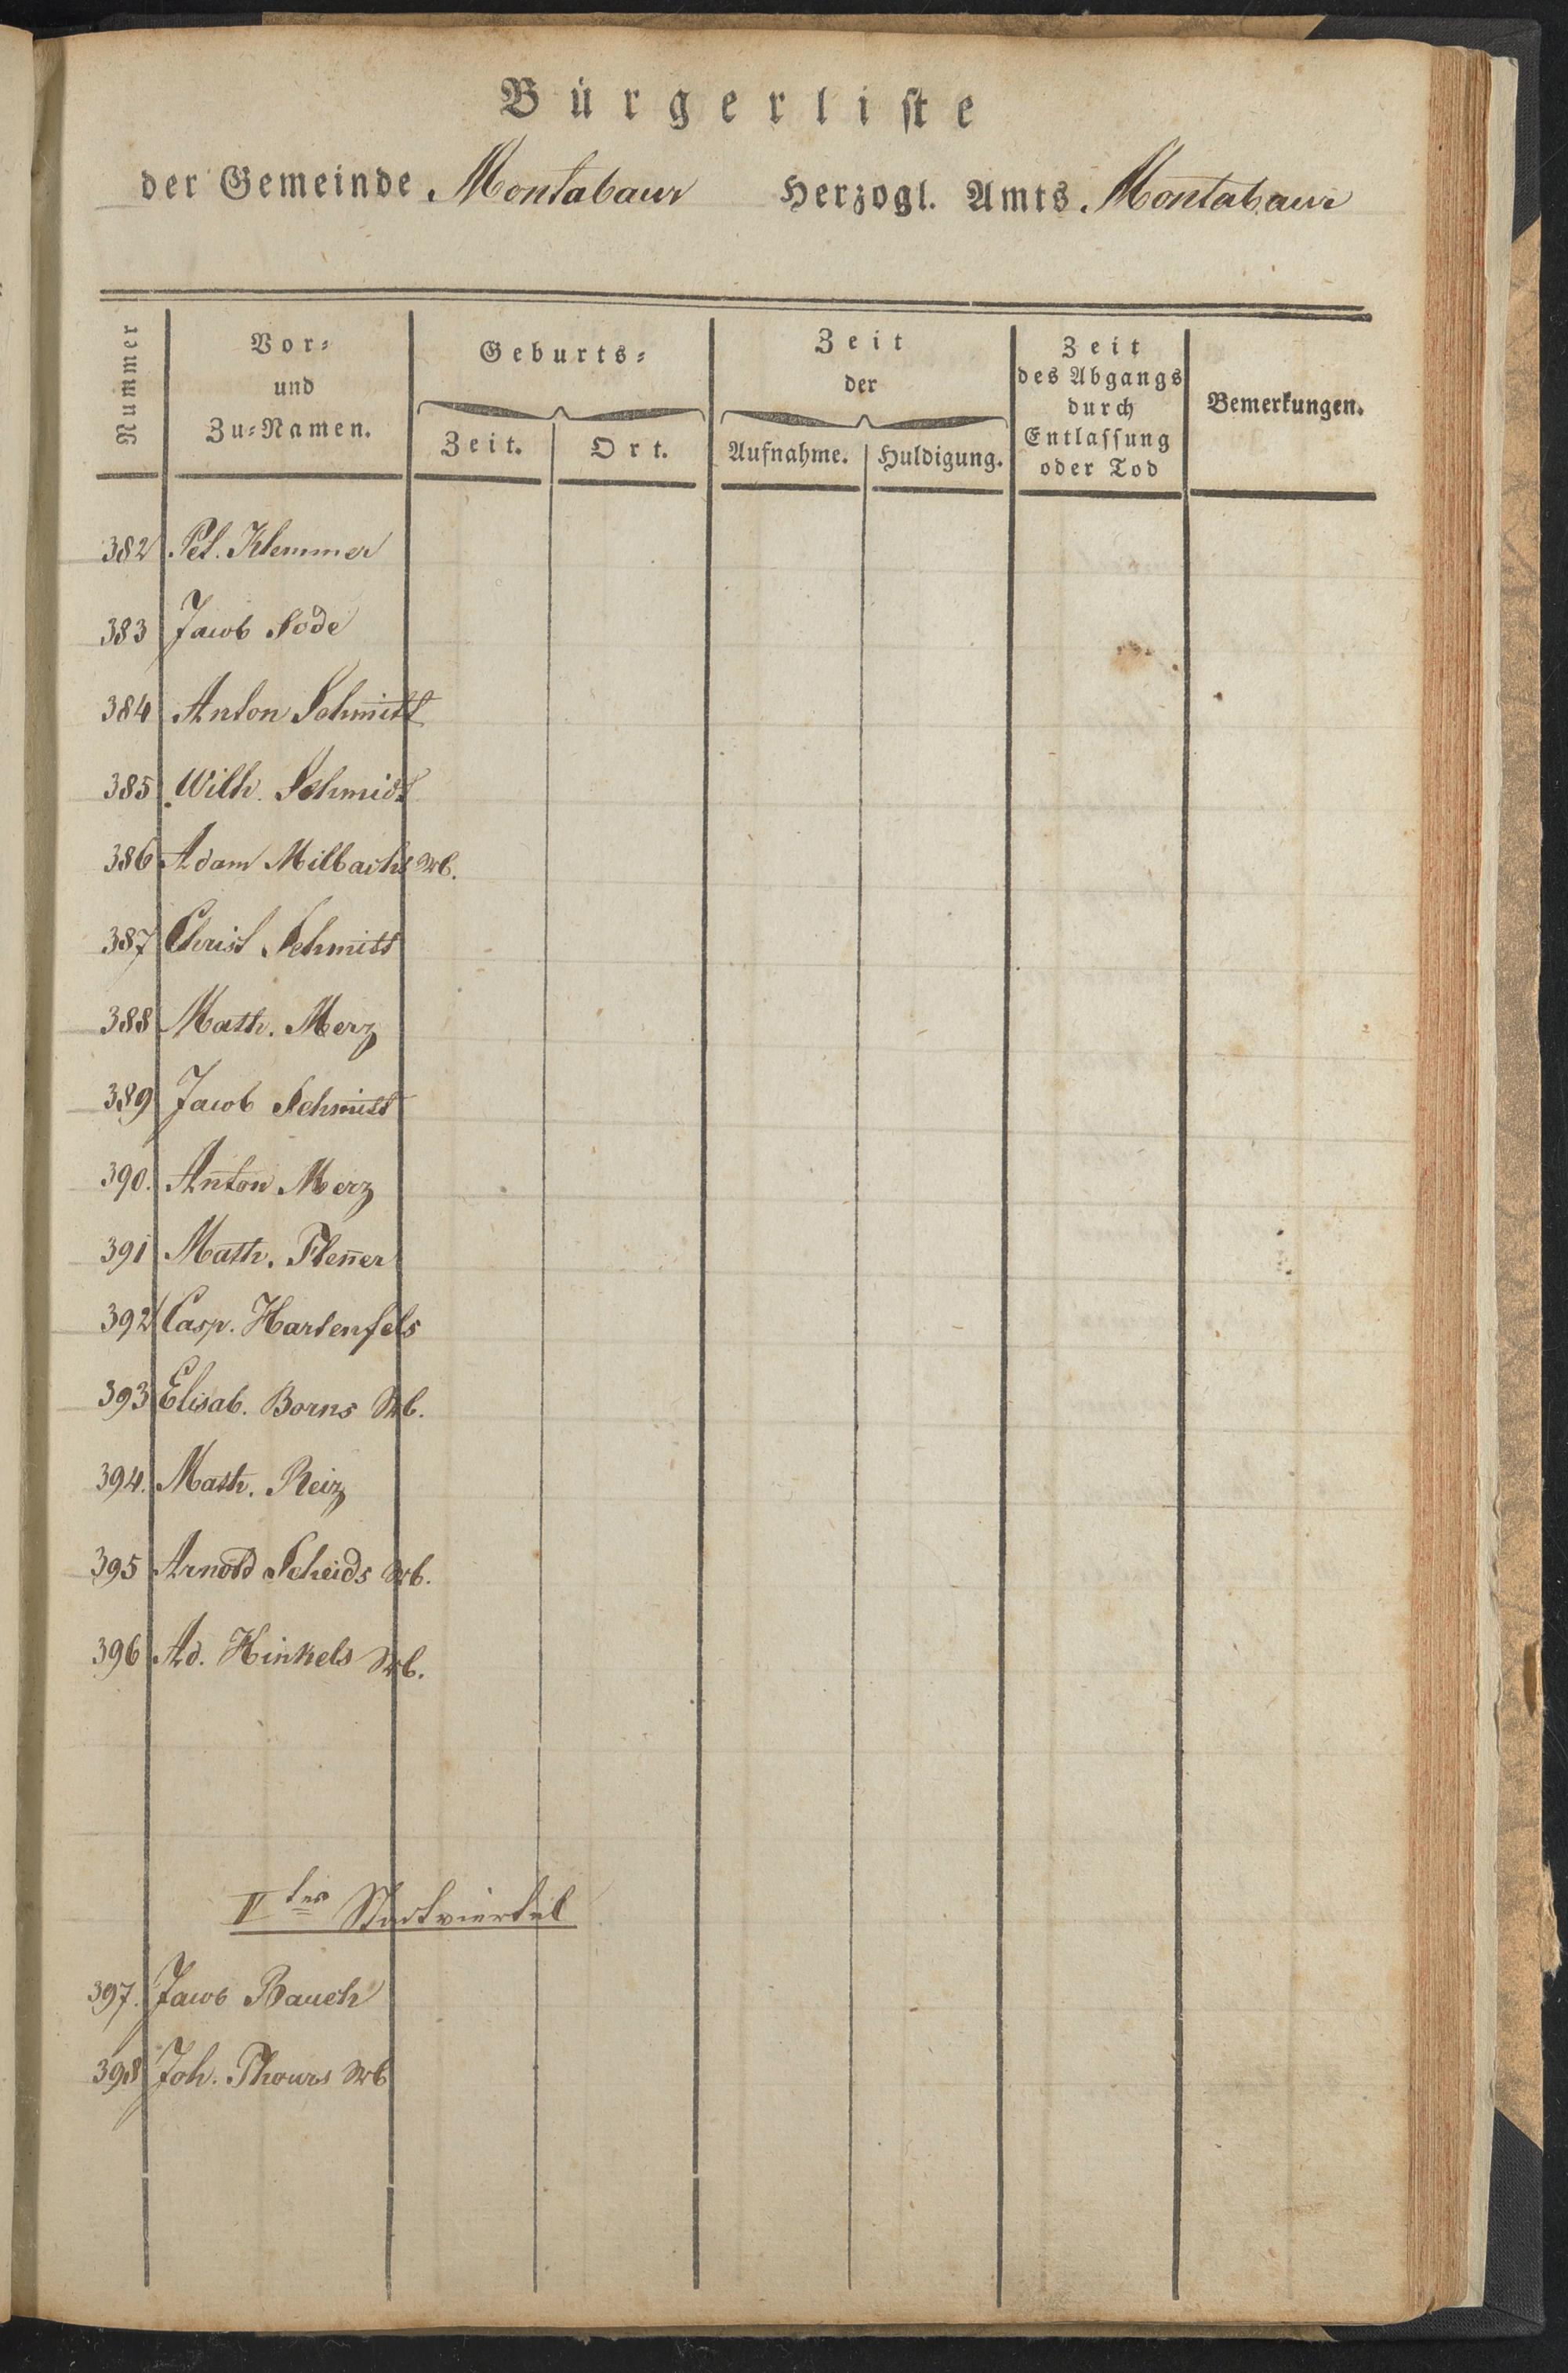 Bürgerliste
der Gemeinde Montabaur Herzogl. Amts Montabaur
Nummer
Vor=
und
Zu=Namen.
Geburts=
Zeit. Ort.
Zeit
der
Aufnahme. Huldigung.
Zeit
des Abgangs
durch
Entlassung
oder Tod
Bemerkungen.
382 Pet. Klemmer
383 Jacob Sode
384 Anton Schmitt
385 Wilh. Schmidt
386 Adam Milbachs Wb.
387 Christ Schmitt
388 Math. Merz
389 Jacob Schmitt
390. Anton Merz
391 Math. Flen̄er
392 Casp. Hartenfels
393 Elisab. Borns Wb.
394. Math. Reiz
395 Arnold Scheids Wb.
396 Ad. Hinkels Wb.
V tes Stadtviertel
397. Jacob Bauch
398 Joh. Wb